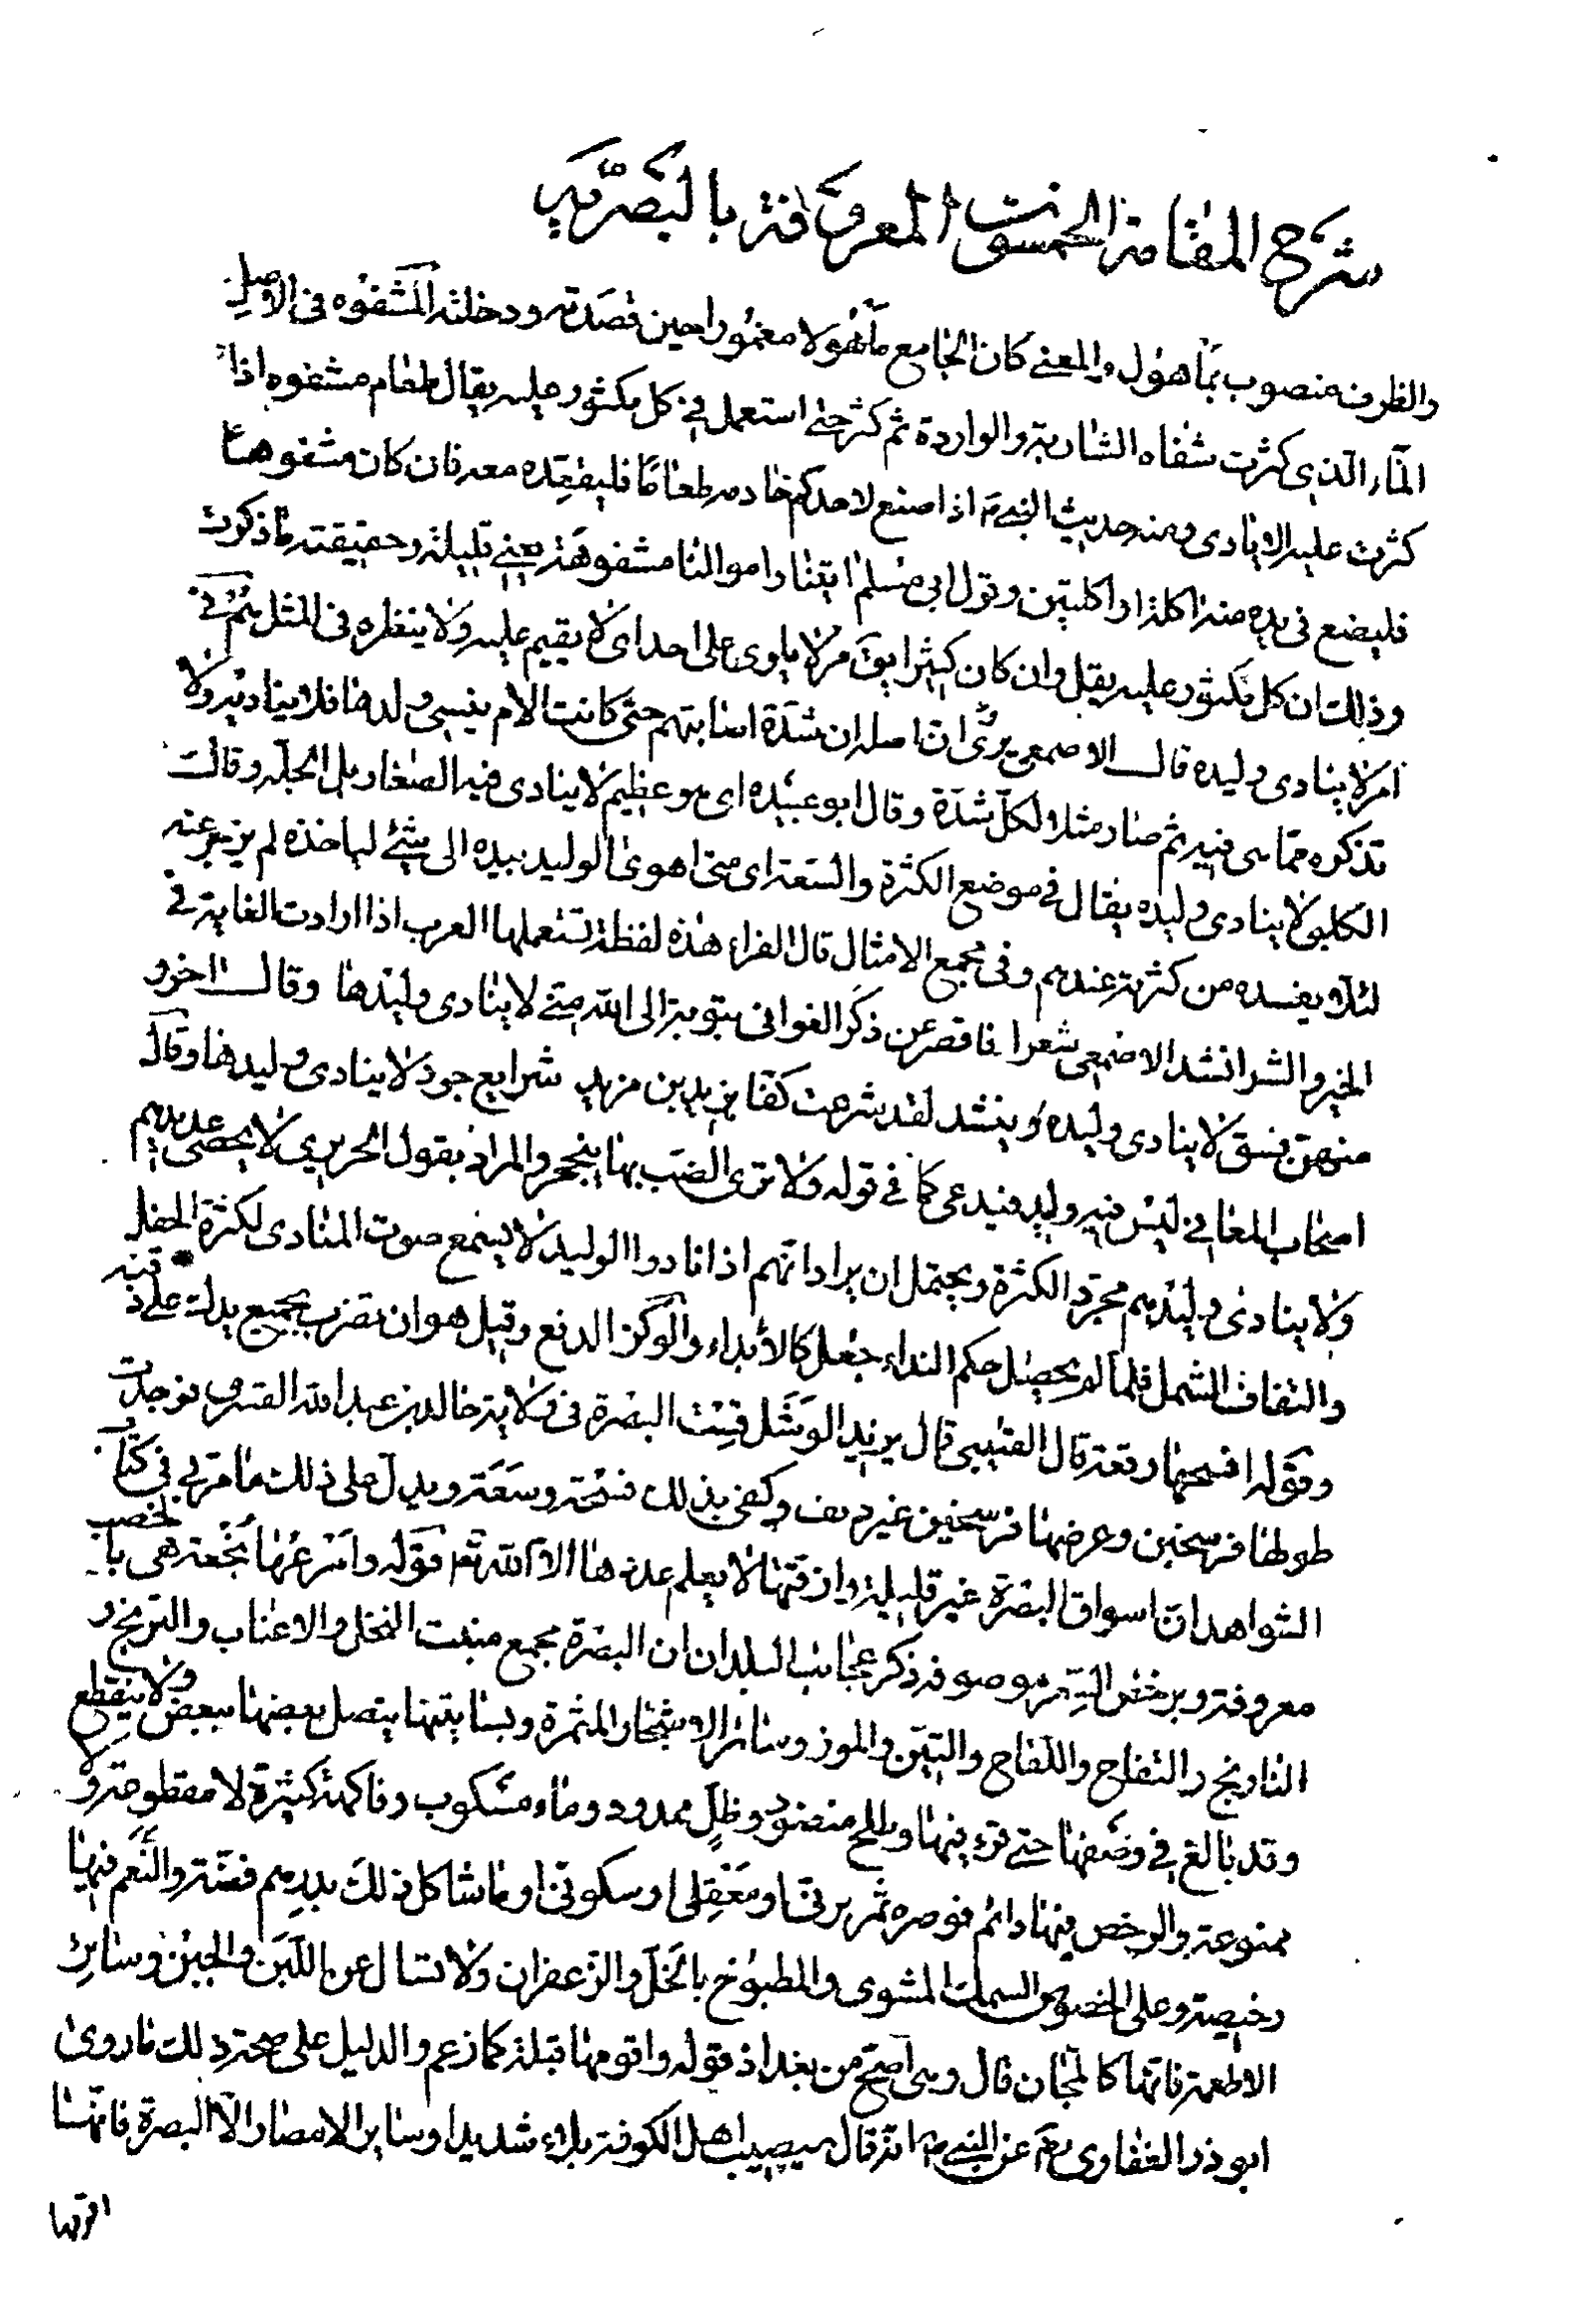 شرح المقامة الخمسون المعروفة بالبصرية
والظرف منصوب بمأهول والمعنى كان الجامع مأهولا مغمورا حين قصدته ودخلته المشفوه فى الاصل
الماء الذى كثرت شفاه الشاربة والواردة ثم كثر حتى استعمل فى كل مكثور عليه يقال طعام مشفوه اذا
كثرت عليه الايادى ومنه حديث النبى ص اذا صنع لاحدكم خادمه طعاما فليقعده معه فان كان مشفوها
فليضع فى يده منه اكلة او اكلتين وقول ابى مسلم اتتنا واموالنا مشفوهة يعنى قليلة وحقيقته ما ذكرت
وذلك ان كل مكثور عليه يقل وان كان كثيرا يق مر لا يلوى على احد اى لا يقيم عليه ولا ينتظره فى المثل هم فى
امر لا ينادى وليده قال الاصمعى يرى ان اصله ان شدة اصابتهم حتى كانت الام ينسى ولدها فلا يناديه ولا
تذكره مما هى فيه ثم صار مثلا لكل شدة وقال ابو عبيده اى هو عظيم لا ينادى فيه الصغار بل الجلة وقالت
الكلبى لا ينادى وليده يقال فى موضع الكثرة والسعة اى متى اهوى الوليد بيده الى شئ لياخذه لم يزجر عنه
لئلا يفسده من كثرته عندهم وفى مجمع الامثال قال الفراء هذه لفظة تستعملها العرب اذا ارادت الغاية فى
الخير والشر انشد الاصمعى شعرا فاقصر عن ذكر الغوانى بتوبة الى الله منى لا ينادى وليدها وقال اخر و
منهن فسق لا ينادى وليده وينشد لقد شرعت كفا يزيد بن مزيد شرايع جود لا ينادى وليدها وقال
اصحاب المعانى ليس فيه وليد فيدعى كما فى قوله ولا ترى الضب بها ينجحر والمراد بقول الحريرى لا يحصى عديدهم
ولا ينادى وليدهم مجرد الكثرة ويحتمل ان يراد انهم اذا نادوا الوليد لا يسمع صوت المنادى لكثرة الحفل
والتفاف الشمل فلما لم يحصل حكم النداء جعل كالابداء والوكز الدفع وقيل هو ان تضرب بجميع يدك على ذقنه
وقوله افسحها رقعة قال القتيبى قال يزيد الرشك قست البصرة فى ولاية خالد بن عبد الله القسرى فوجدت
طولها فرسخين وعرضها فرسخين غير دنف وكفى بذلك فسحة وسعة ويدل على ذلك ما مر بى فى كتاب
الشواهد ان اسواق البصرة غير قليلة وازقتها لا يعلم عددها الا الله تعم قوله وامرعها نجعة هى بالخصب
معروفة وبرخص التمر موصوفة ذكر عجائب البلدان ان البصرة مجمع منبت النخل والاعناب والترنج و
النارنج والتفاح واللفاح والتين والموز وسائر الاشجار المثمرة وبساتينها يتصل بعضها ببعض ولا ينقطع
وقد بالغ فى وصفها حتى قرء فيها وطلح منضود وظل ممدود وماء مسكوب وفاكهة كثيرة لا مقطوعة ولا
ممنوعة والرخص فيها دائم قوصره تمر برنى او معقلى او سكونى او ما شاكل ذلك بدرهم فضة والنعم فيها
رخيصة وعلى الخصوص السمك المشوى والمطبوخ بالخل والزعفران ولا تسال عن اللبن والجبن وسائر
الاطعمة فانها كالمجان قال وهى اصح من بغداذ قوله واقومها قبلة كما زعم والدليل على صحة ذلك ما روى
ابو ذر الغفارى رض عن النبى ص انه قال سيصيب اهل الكوفة بلاء شديد او سائر الامصار الا البصرة فانها
اقومها